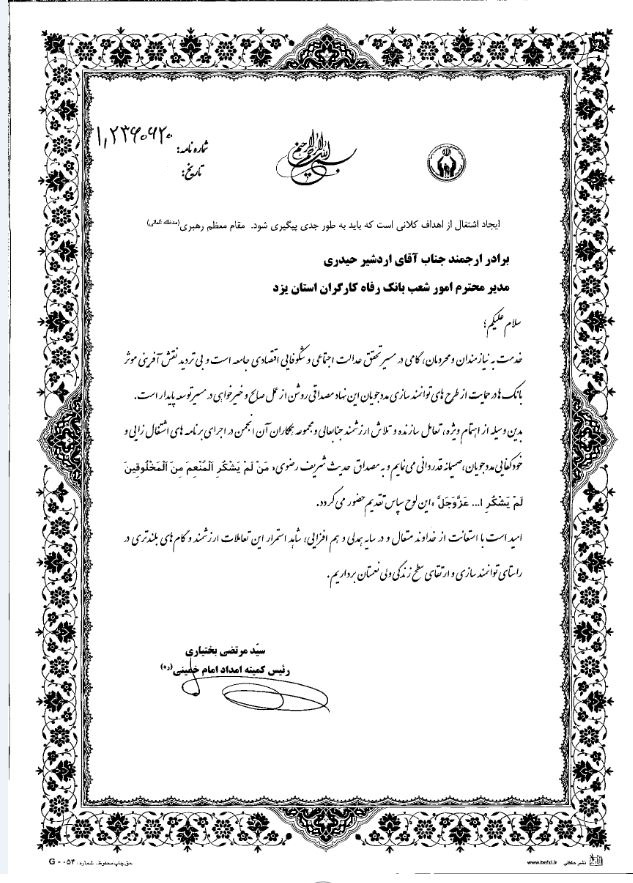 شماره نامه: ۱,۲۳۶۰۶۲۰
تاریخ:
بسم الله الرحمن الرحیم
ایجاد اشتغال از اهداف کلانی است که باید به طور جدی پیگیری شود. مقام معظم رهبری (مدظله العالی)
برادر ارجمند جناب آقای اردشیر حیدری
مدیر محترم امور شعب بانک رفاه کارگران استان یزد
سلام علیکم؛
خدمت به نیازمندان و محرومان، گامی در مسیر تحقق عدالت اجتماعی و شکوفایی اقتصادی جامعه است و بی تردید نقش آفرینی موثر
بانک ها در حمایت از طرح های توانمند سازی مددجویان این نهاد مصداقی روشن از عمل صالح و خیرخواهی در مسیر توسعه پایدار است.
بدین وسیله از اهتمام ویژه، تعامل سازنده و تلاش ارزشمند جنابعالی و مجموعه همکاران آن انجمن در اجرای برنامه های اشتغال زایی و
خودکفایی مددجویان، صمیمانه قدردانی می نمایم و به مصداق حدیث شریف رضوی، مَنْ لَمْ يَشْكُرِ الْمُنْعِمَ مِنَ الْمَخْلُوقِينَ
لَمْ يَشْكُرِ ا... عَزَّوَجَلَّ، این لوح سپاس تقدیم حضور می گردد.
امید است با استعانت از خداوند متعال و در سایه همدلی و هم افزایی، شاهد استمرار این تعاملات ارزشمند و گام های بلندتری در
راستای توانمند سازی و ارتقای سطح زندگی ولی نعمتان برداریم.
سیّد مرتضی بختیاری
رئیس کمیته امداد امام خمینی (ره)
حق چاپ محفوظ. شماره: G - ۰۵۴
نشر www.tnafxi.ir